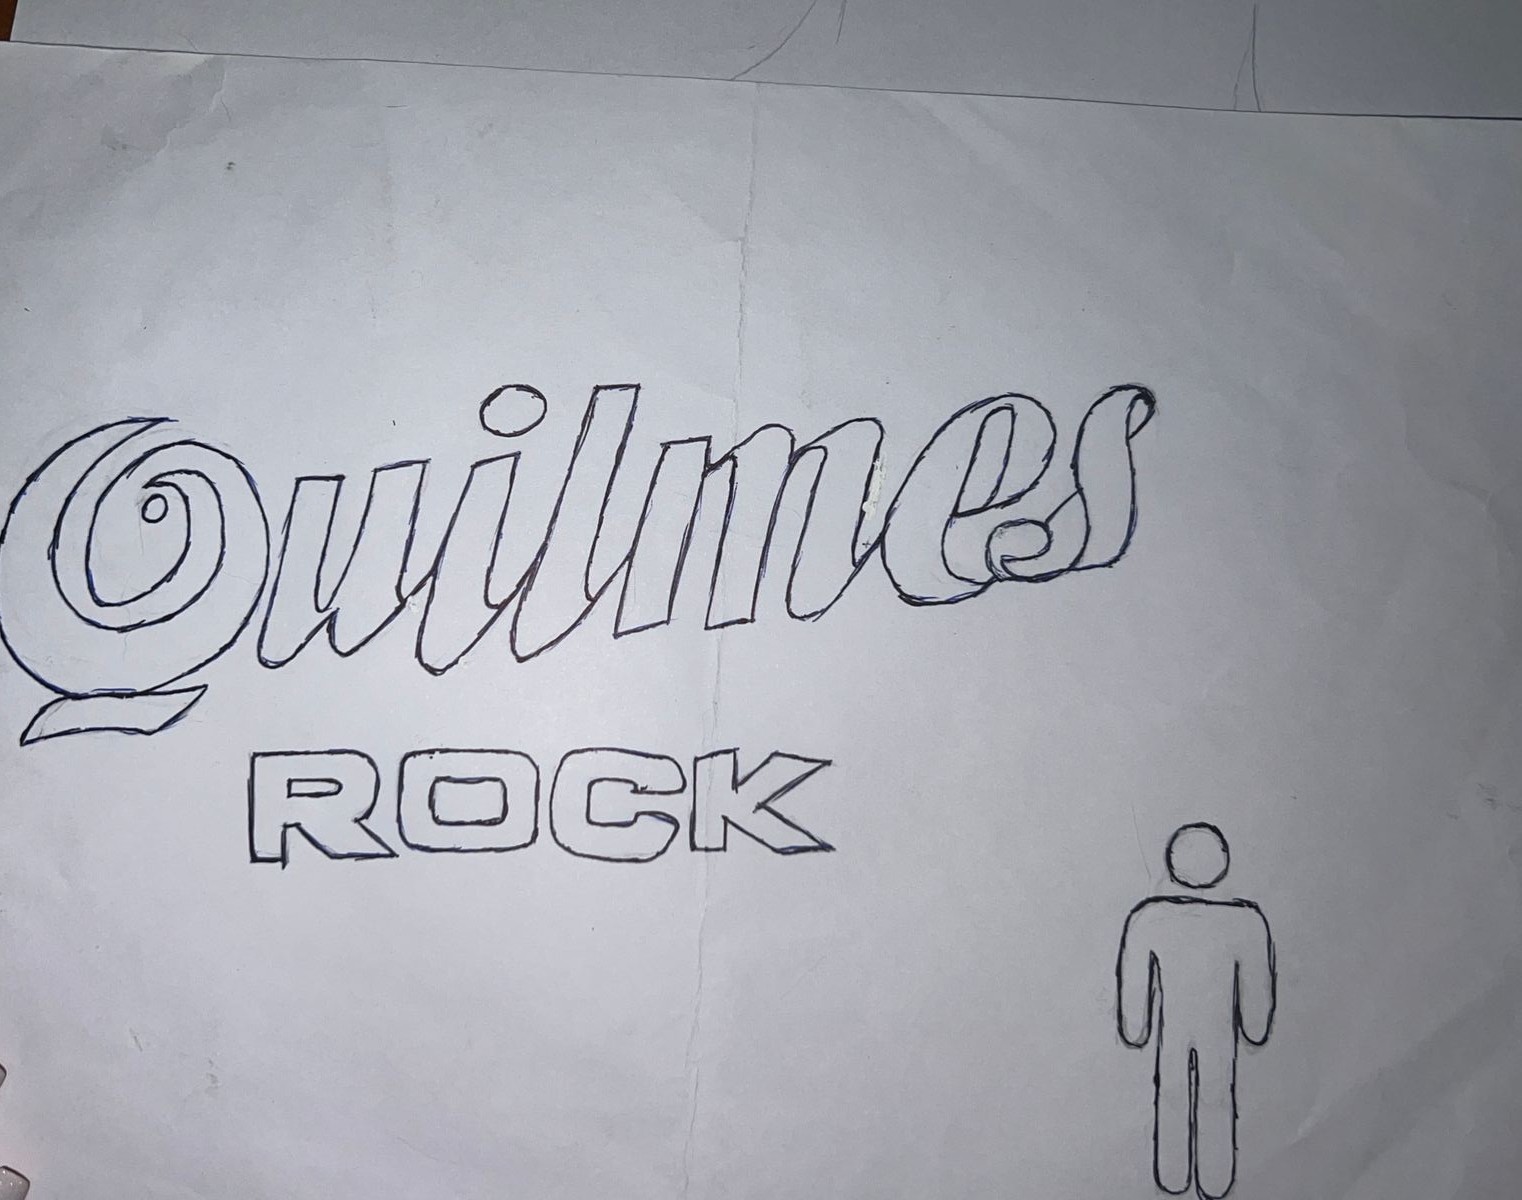 Quilmes
ROCK